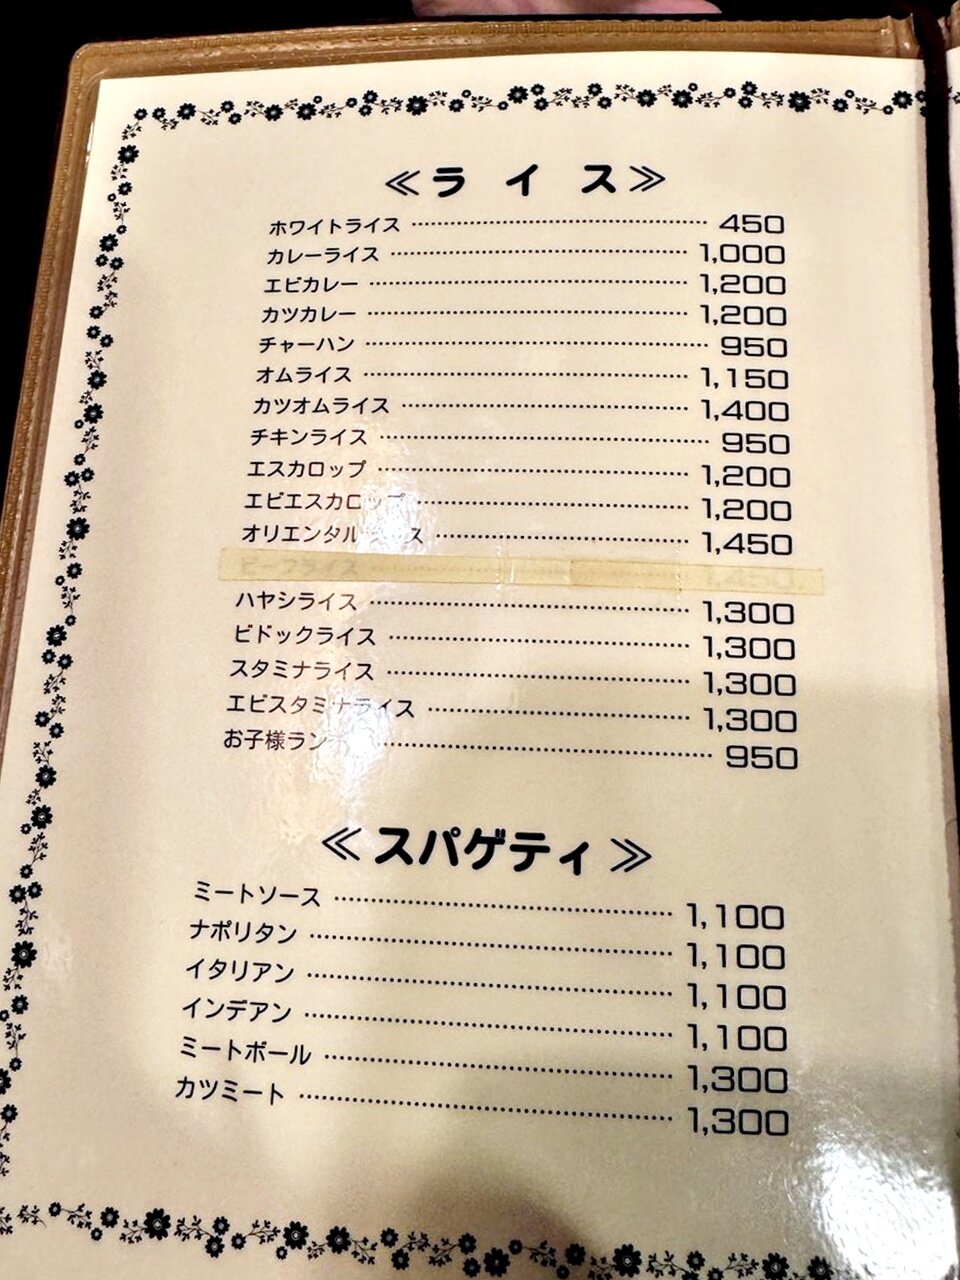 ≪ライス≫
ホワイトライス 450
カレーライス 1,000
エビカレー 1,200
カツカレー 1,200
チャーハン 950
オムライス 1,150
カツオムライス 1,400
チキンライス 950
エスカロップ 1,200
エビエスカロップ 1,200
オリエンタルライス 1,450
ビーフライス 1,450
ハヤシライス 1,300
ビドックライス 1,300
スタミナライス 1,300
エビスタミナライス 1,300
お子様ランチ 950
≪スパゲティ≫
ミートソース 1,100
ナポリタン 1,100
イタリアン 1,100
インデアン 1,100
ミートボール 1,300
カツミート 1,300